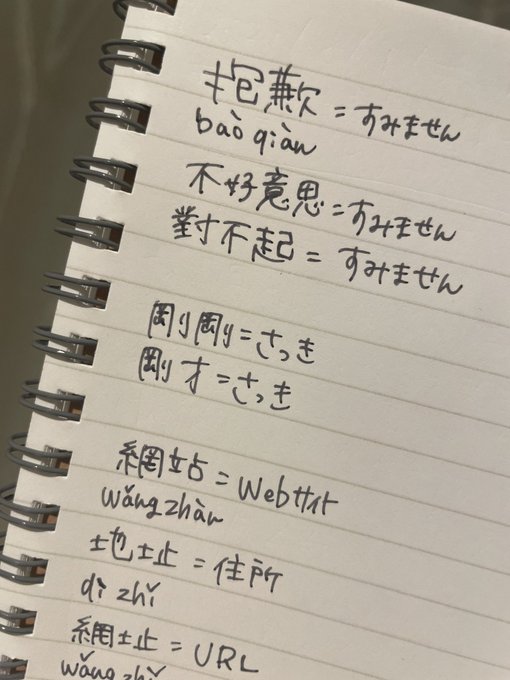 抱歉=すみません
bào qiàn
不好意思=すみません
對不起=すみません
剛剛=さっき
剛才=さっき
網站=Webサイト
wǎng zhàn
地址=住所
dì zhǐ
網址=URL
wǎng zhǐ